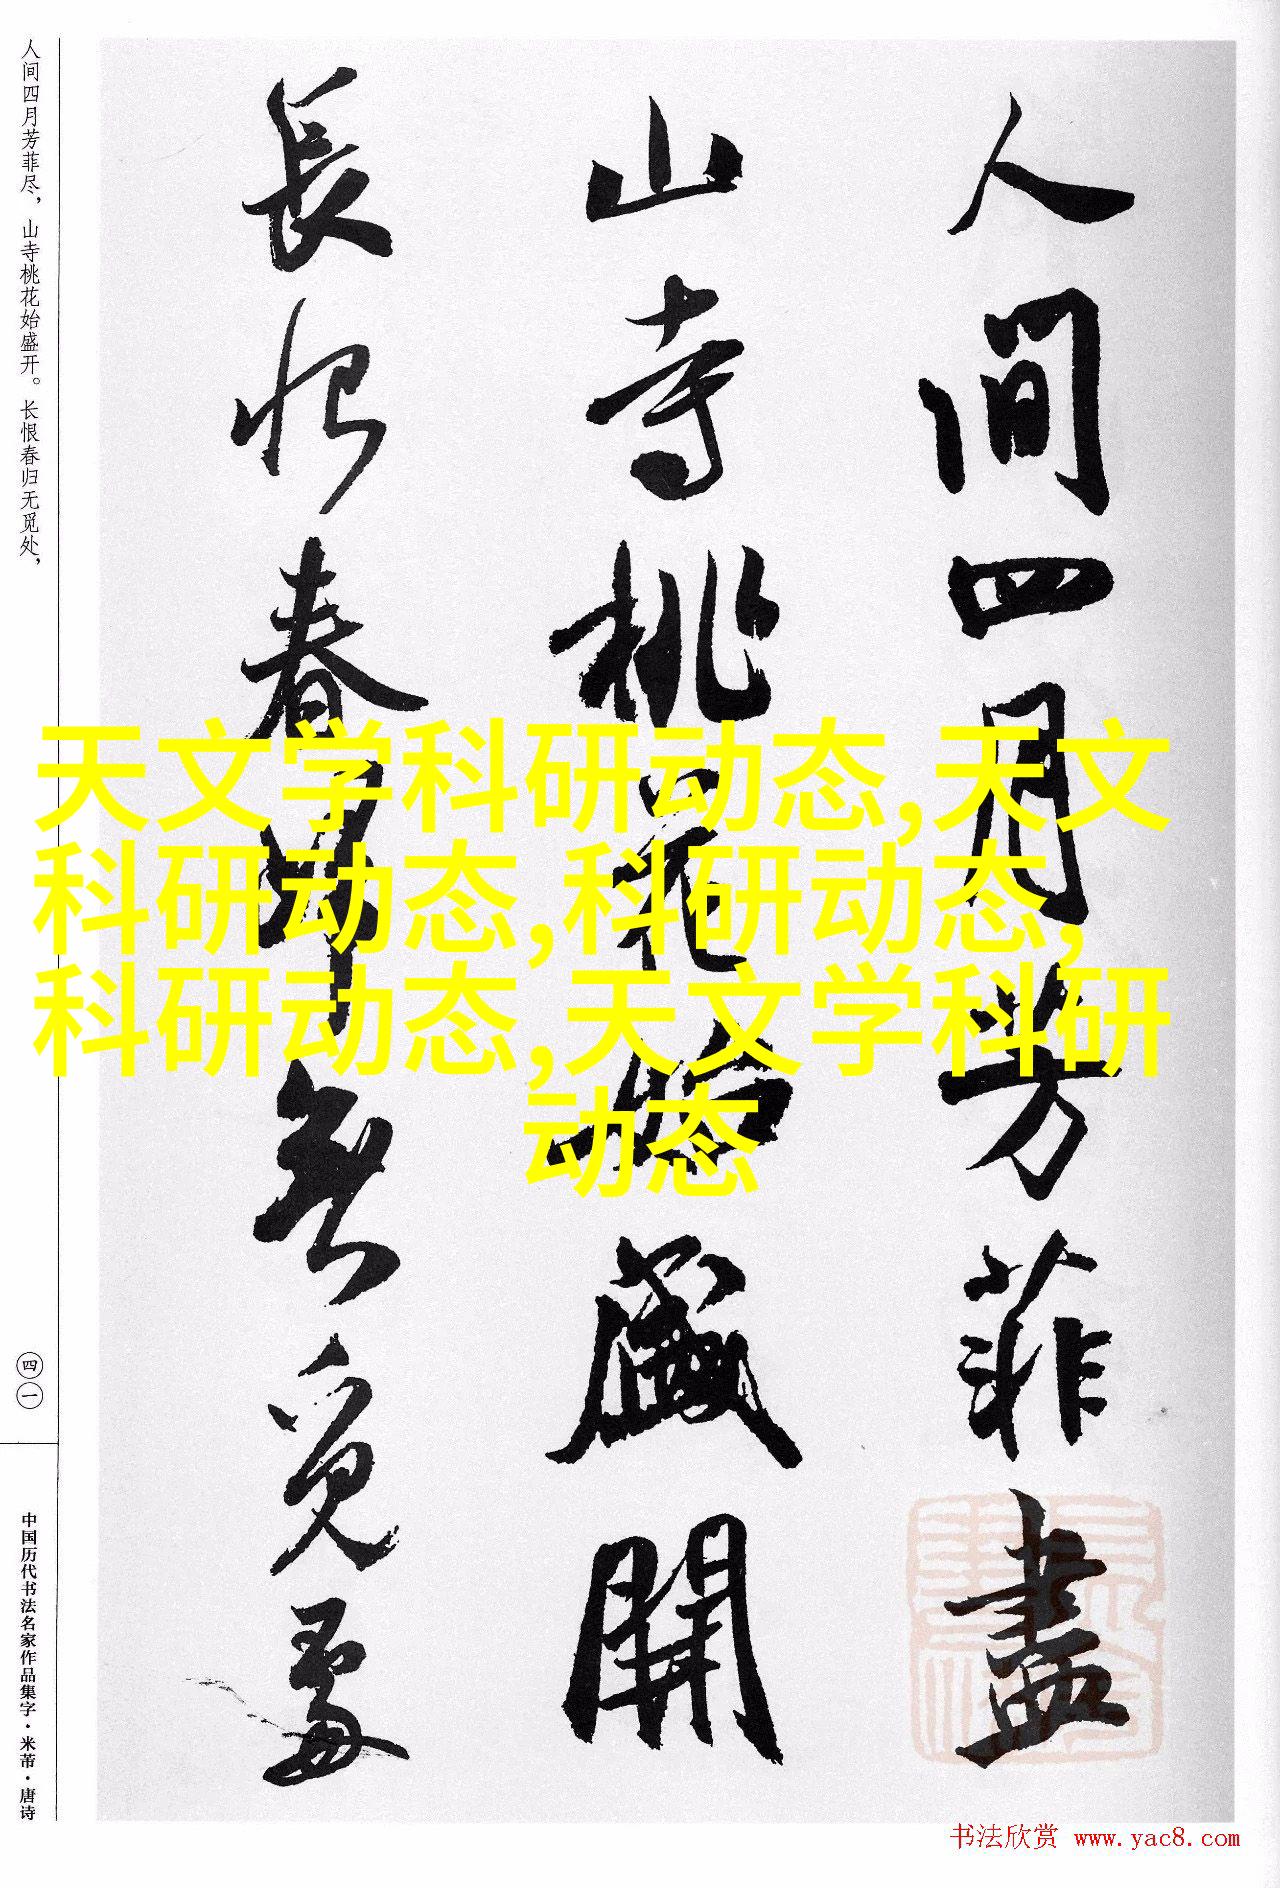 人间四月芳菲尽，山寺桃花始盛开。长恨春归无觅处，
人間四月芳菲盡
山寺桃花始盛開
長恨春歸無覓處
天文学科研动态,天文
科研动态,科研动态,
科研动态,天文学科研
动态
四一
中国历代书法名家作品集字·米芾·唐诗
书法欣赏 www.yac8.com